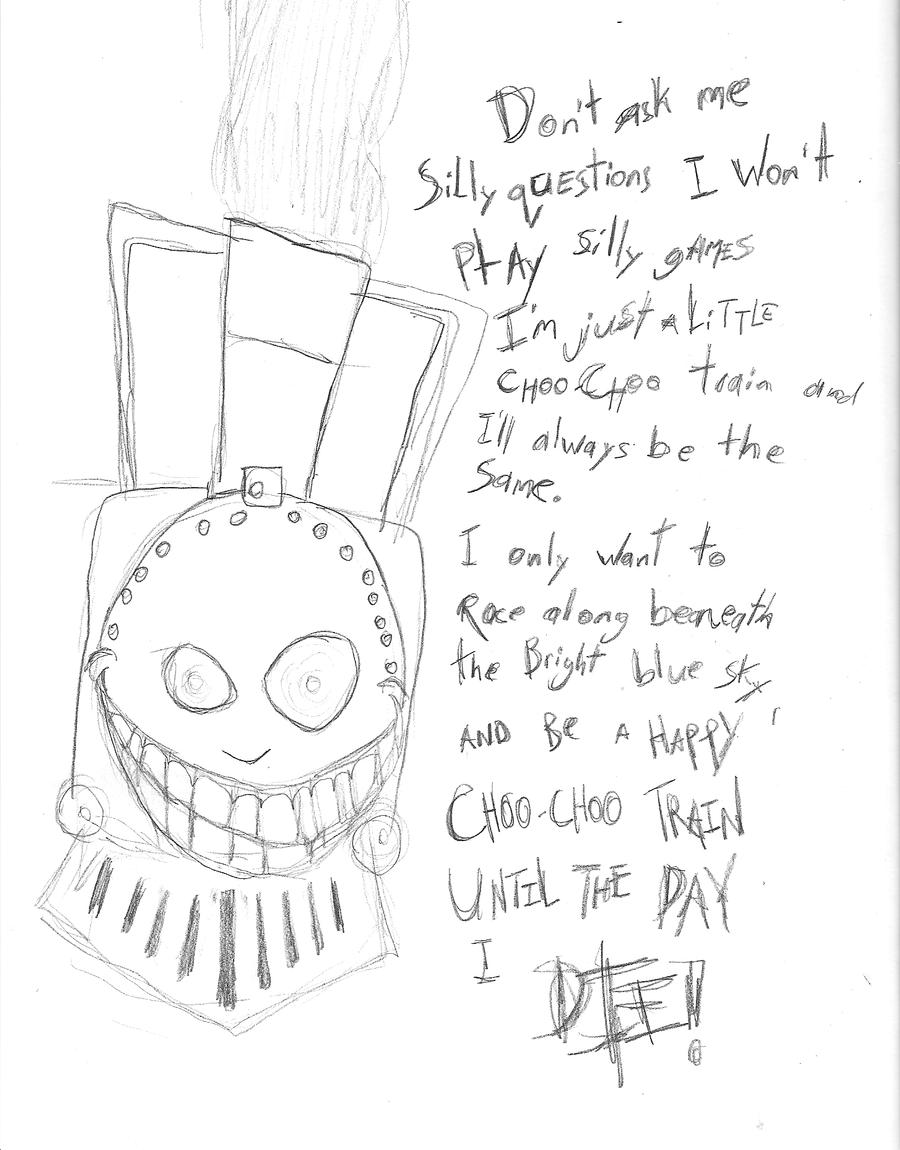 Don't ask me
Silly quEstions I Won't
PlAy Silly gAMES
I'm just a LiTTLE
CHOO-CHOO train and
I'll always be the
Same.
I only want to
Race along beaneath
the Bright blue sky
AND BE A HAPPY
CHOO-CHOO TRAIN
UNTIL THE DAY
I DIE!